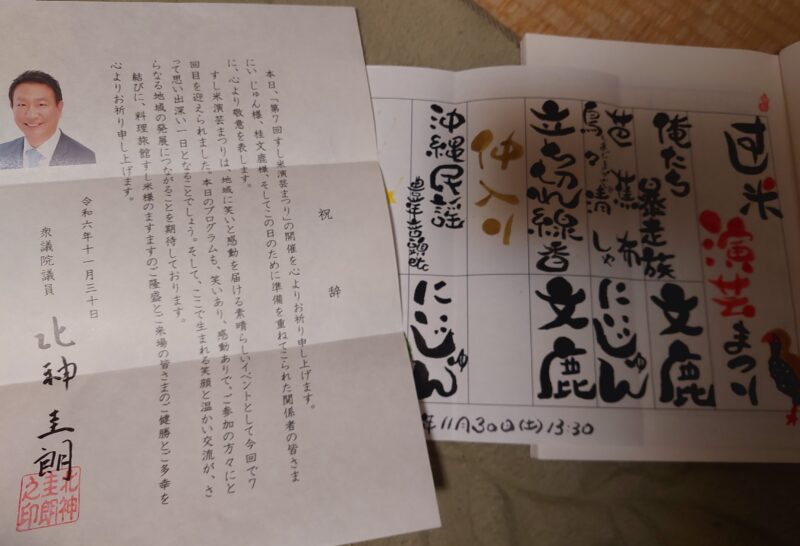 祝　辞
本日、「第7回すし米演芸まつり」の開催を心よりお祈り申し上げます。
にいじゅん様、桂文鹿様、そしてこの日のために準備を重ねてこられた関係者の皆さま
に、心より敬意を表します。
すし米演芸まつりは、地域に笑いと感動を届ける素晴らしいイベントとして今回で7
回目を迎えられました。本日のプログラムも、笑いあり、感動ありで、ご参加の方々にと
って思い出深い一日となることでしょう。そして、ここで生まれる笑顔と温かい交流が、さ
らなる地域の発展につながることを期待しております。
結びに、料理旅館すし米様のますますのご隆盛とご来場の皆さまのご健勝とご多幸を
心よりお祈り申し上げます。
令和六年十一月三十日
衆議院議員
北神圭朗
北神圭朗之印
すし米演芸まつり
俺たち暴走族
文鹿
芭蕉布
鳥々清しゃ
にいじゅん
立ち切れ線香
文鹿
仲入り
沖縄民謡
豊年音頭etc
にいじゅん
年11月30日(土)13:30